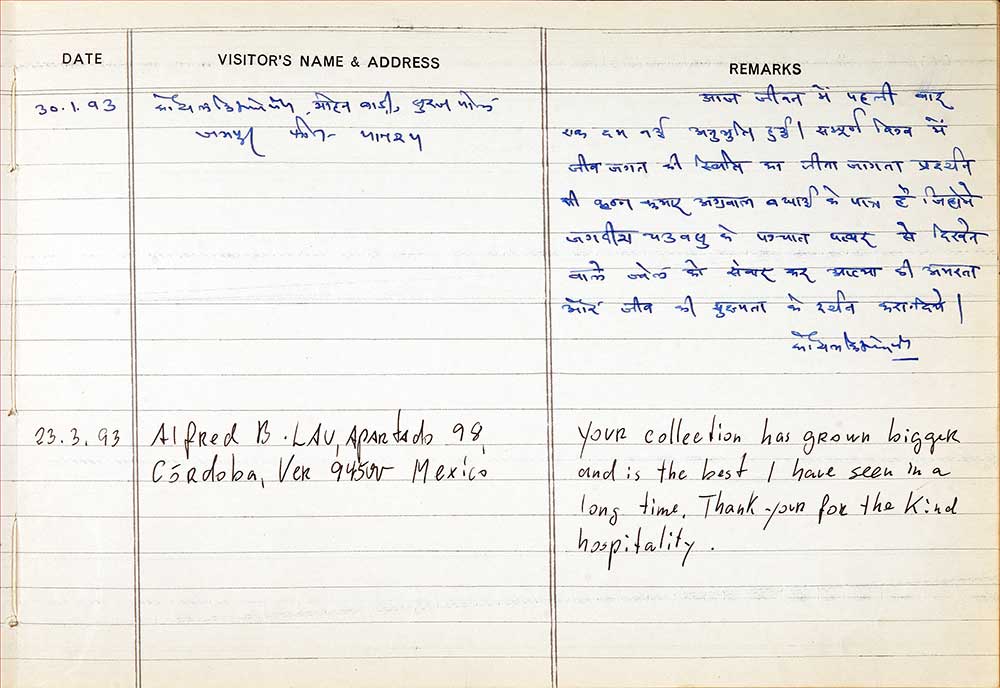 DATE
VISITOR'S NAME & ADDRESS
REMARKS
30.1.93
मोहन बाडी, सूरज पोल
जयपुर फोन-
आज जीवन में पहली बार
एक दम नई अनुभुति हुई। सम्पूर्ण विश्व में
जीव जगत की स्थिति का जीता जागता प्रदर्शन
श्री कुमार अग्रवाल बधाई के पात्र है जिन्होंने
जगदीश के पश्चात पत्थर से दिखने
वाले को संवार कर आत्मा की अमरता
और जीव की सुक्ष्मता के दर्शन करा दिये।
23.3.93
Alfred B. LAU, Apartado 98
Córdoba, Ver 94500 Mexico
Your collection has grown bigger
and is the best I have seen in a
long time. Thank your for the kind
hospitality.